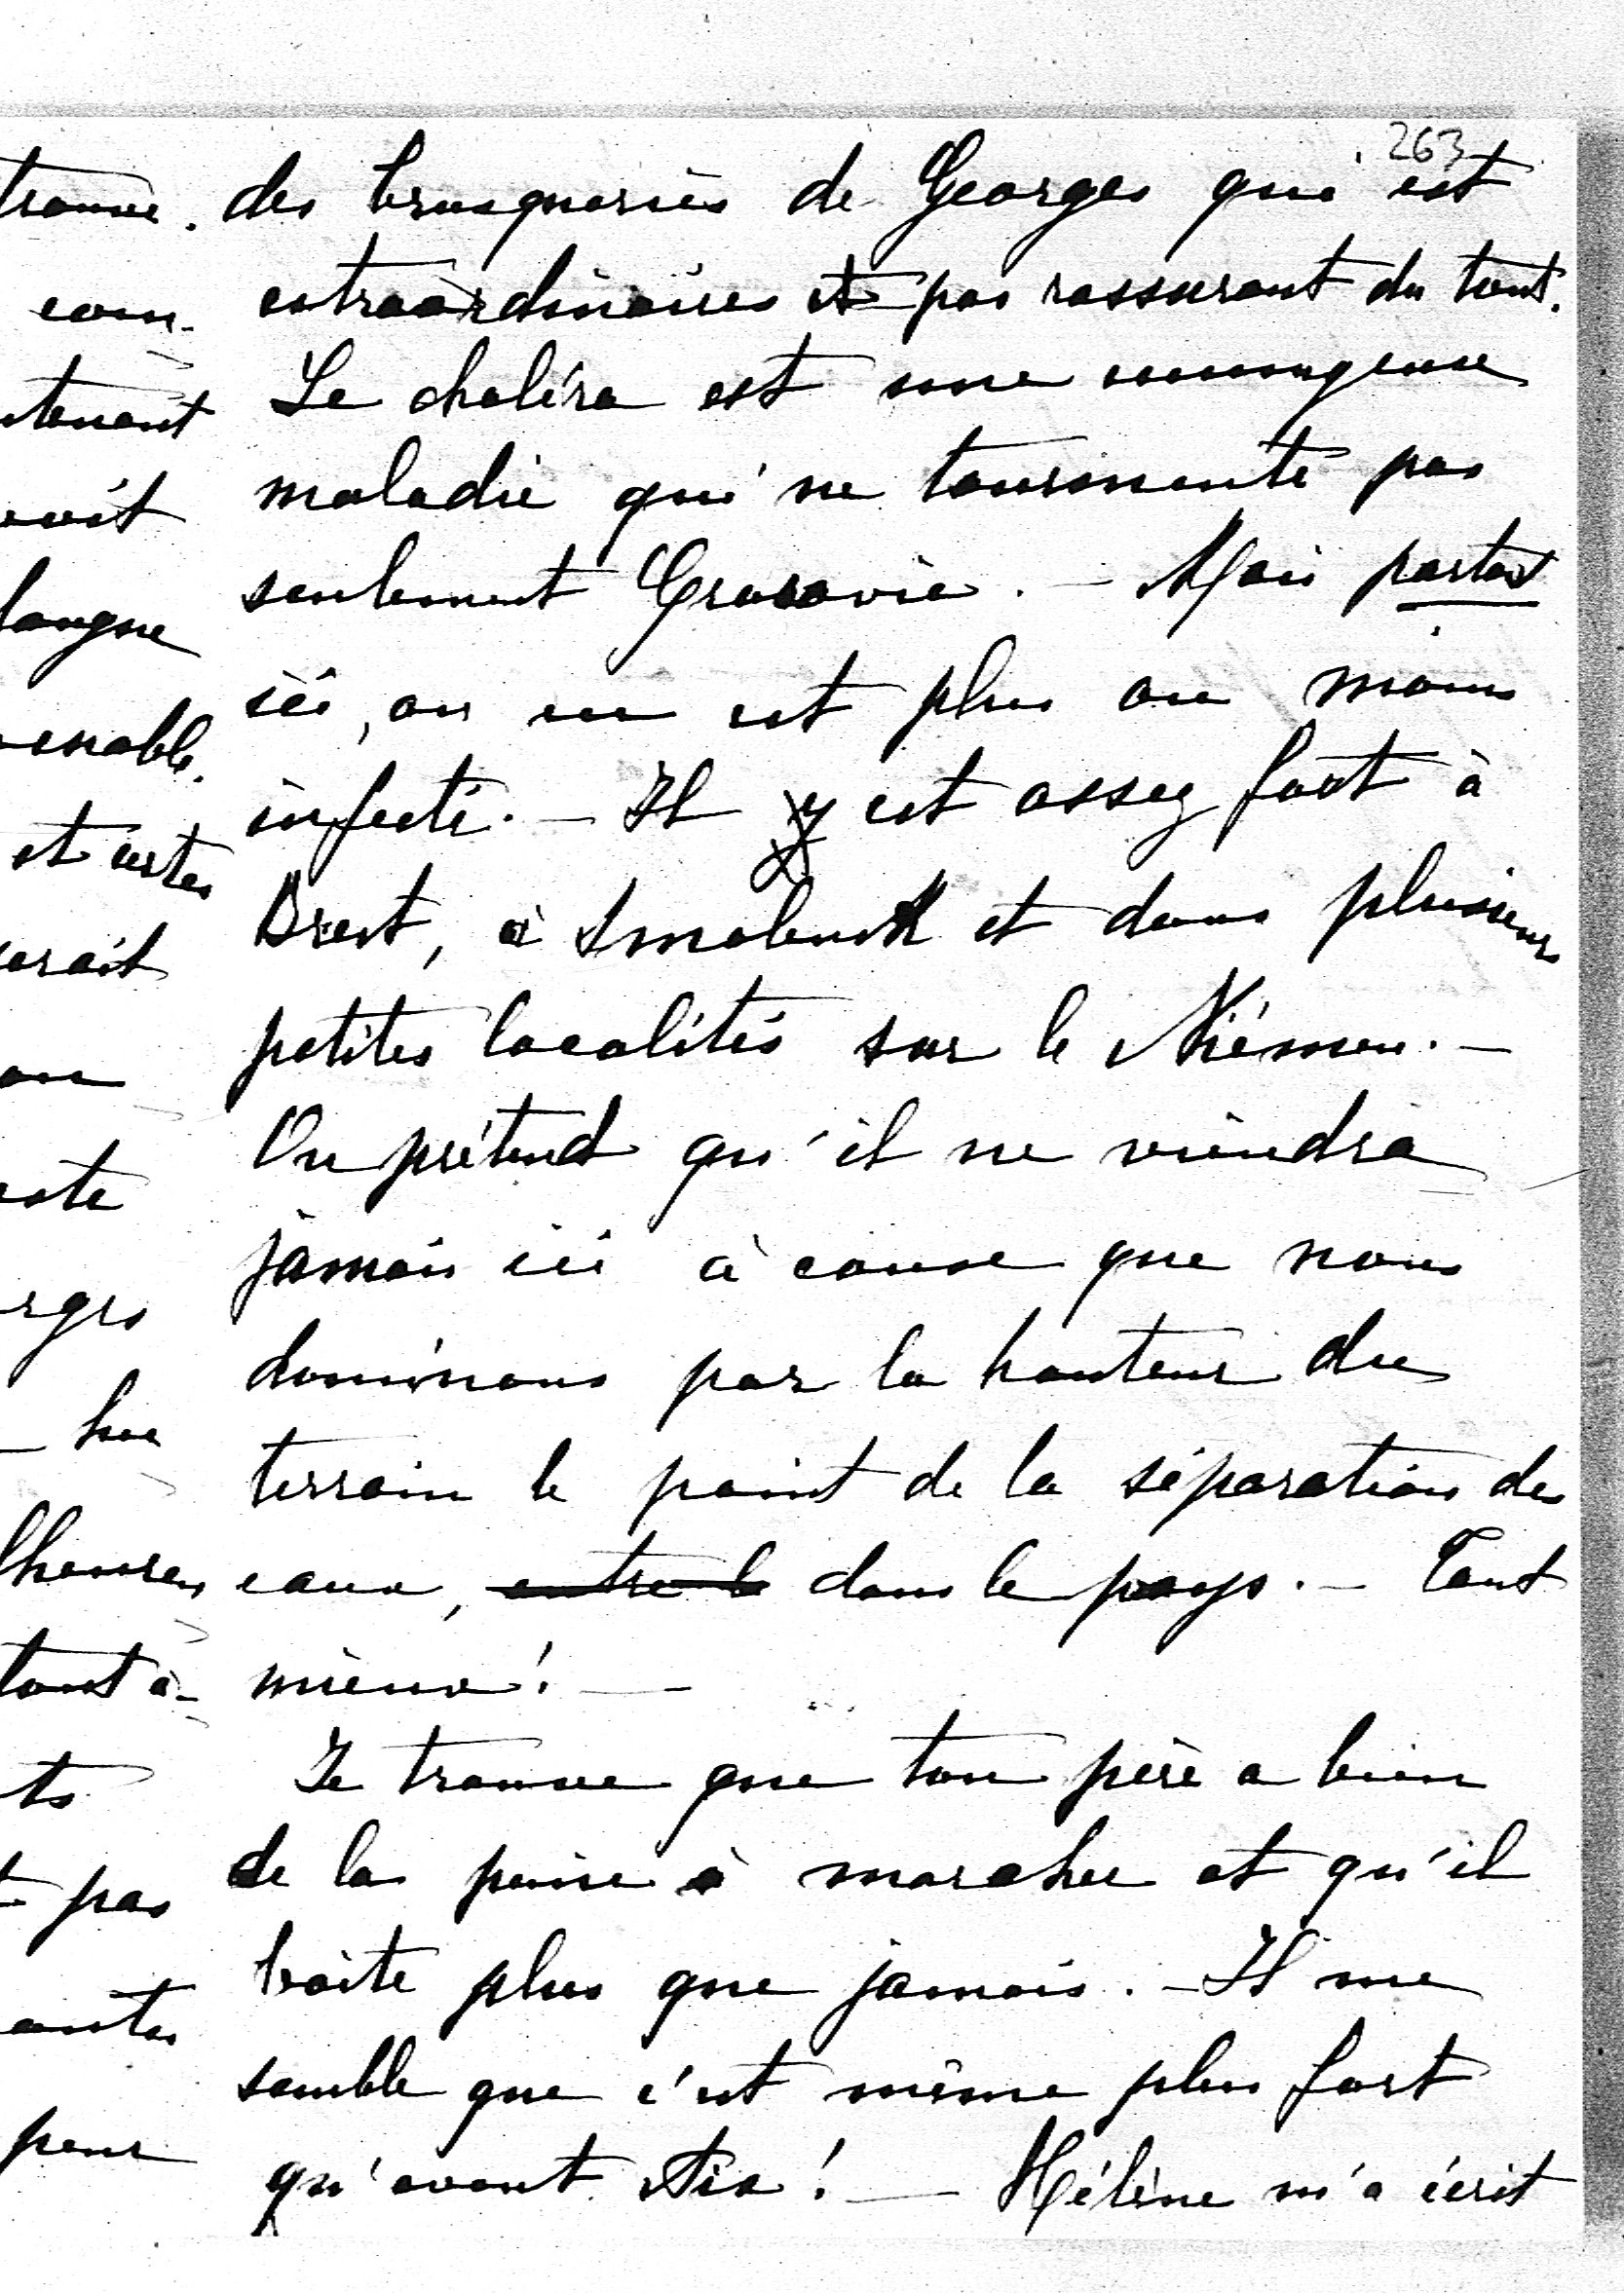 263
des brusqueries de Georges qui est
extraordinaires et pas rassurant du tout.
Le choléra est une
maladie qui ne tourmente pas
seulement Cracovie. — Mais partout
ici, on en est plus ou moins
infecté. — Il y est assez fort à
Brest, à Smolensk et dans plusieurs
petites localités sur le Niémen. —
On prétend qu'il ne viendra
jamais ici à cause que nous
dominons par la hauteur du
terrain le point de la séparation des
eaux, entre le dans le pays. — Tant
mieux! —
Je trouve que ton père a bien
de la peine à marcher et qu'il
boite plus que jamais. — Il me
semble que c'est même plus fort
qu'avant Aix! — Hélène m'a écrit
trouve.
com-
ntenant
voit
langue
enable.
et certes
serait
on
este
orges
lheureux
tout à-
ts
t pas
antes
peur